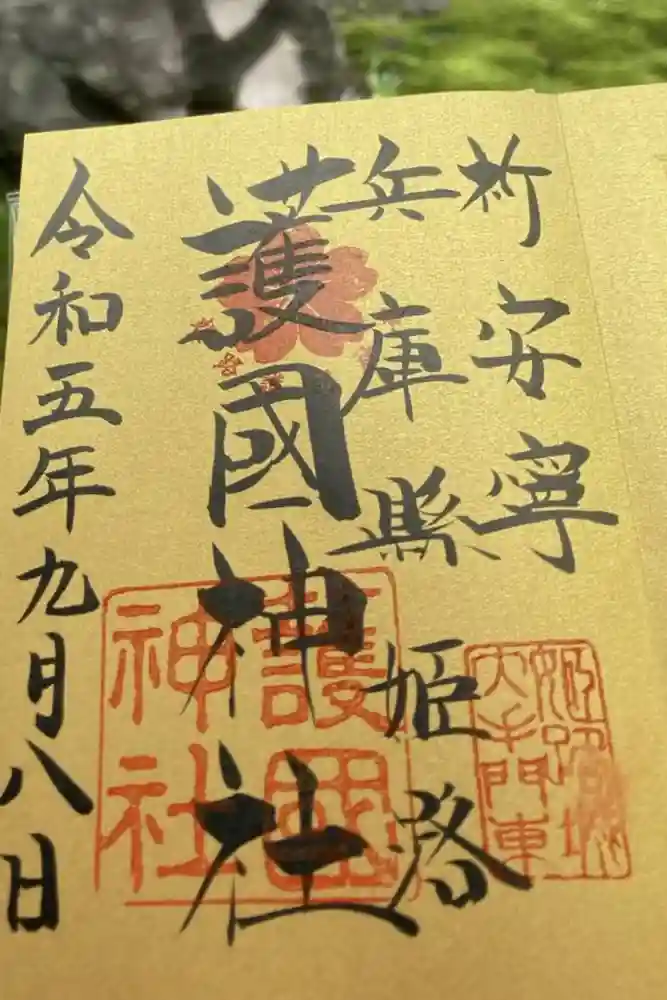 祈安寧
兵庫縣姫路
護國神社
令和五年九月八日
護國
神社
姫路城
大手門東